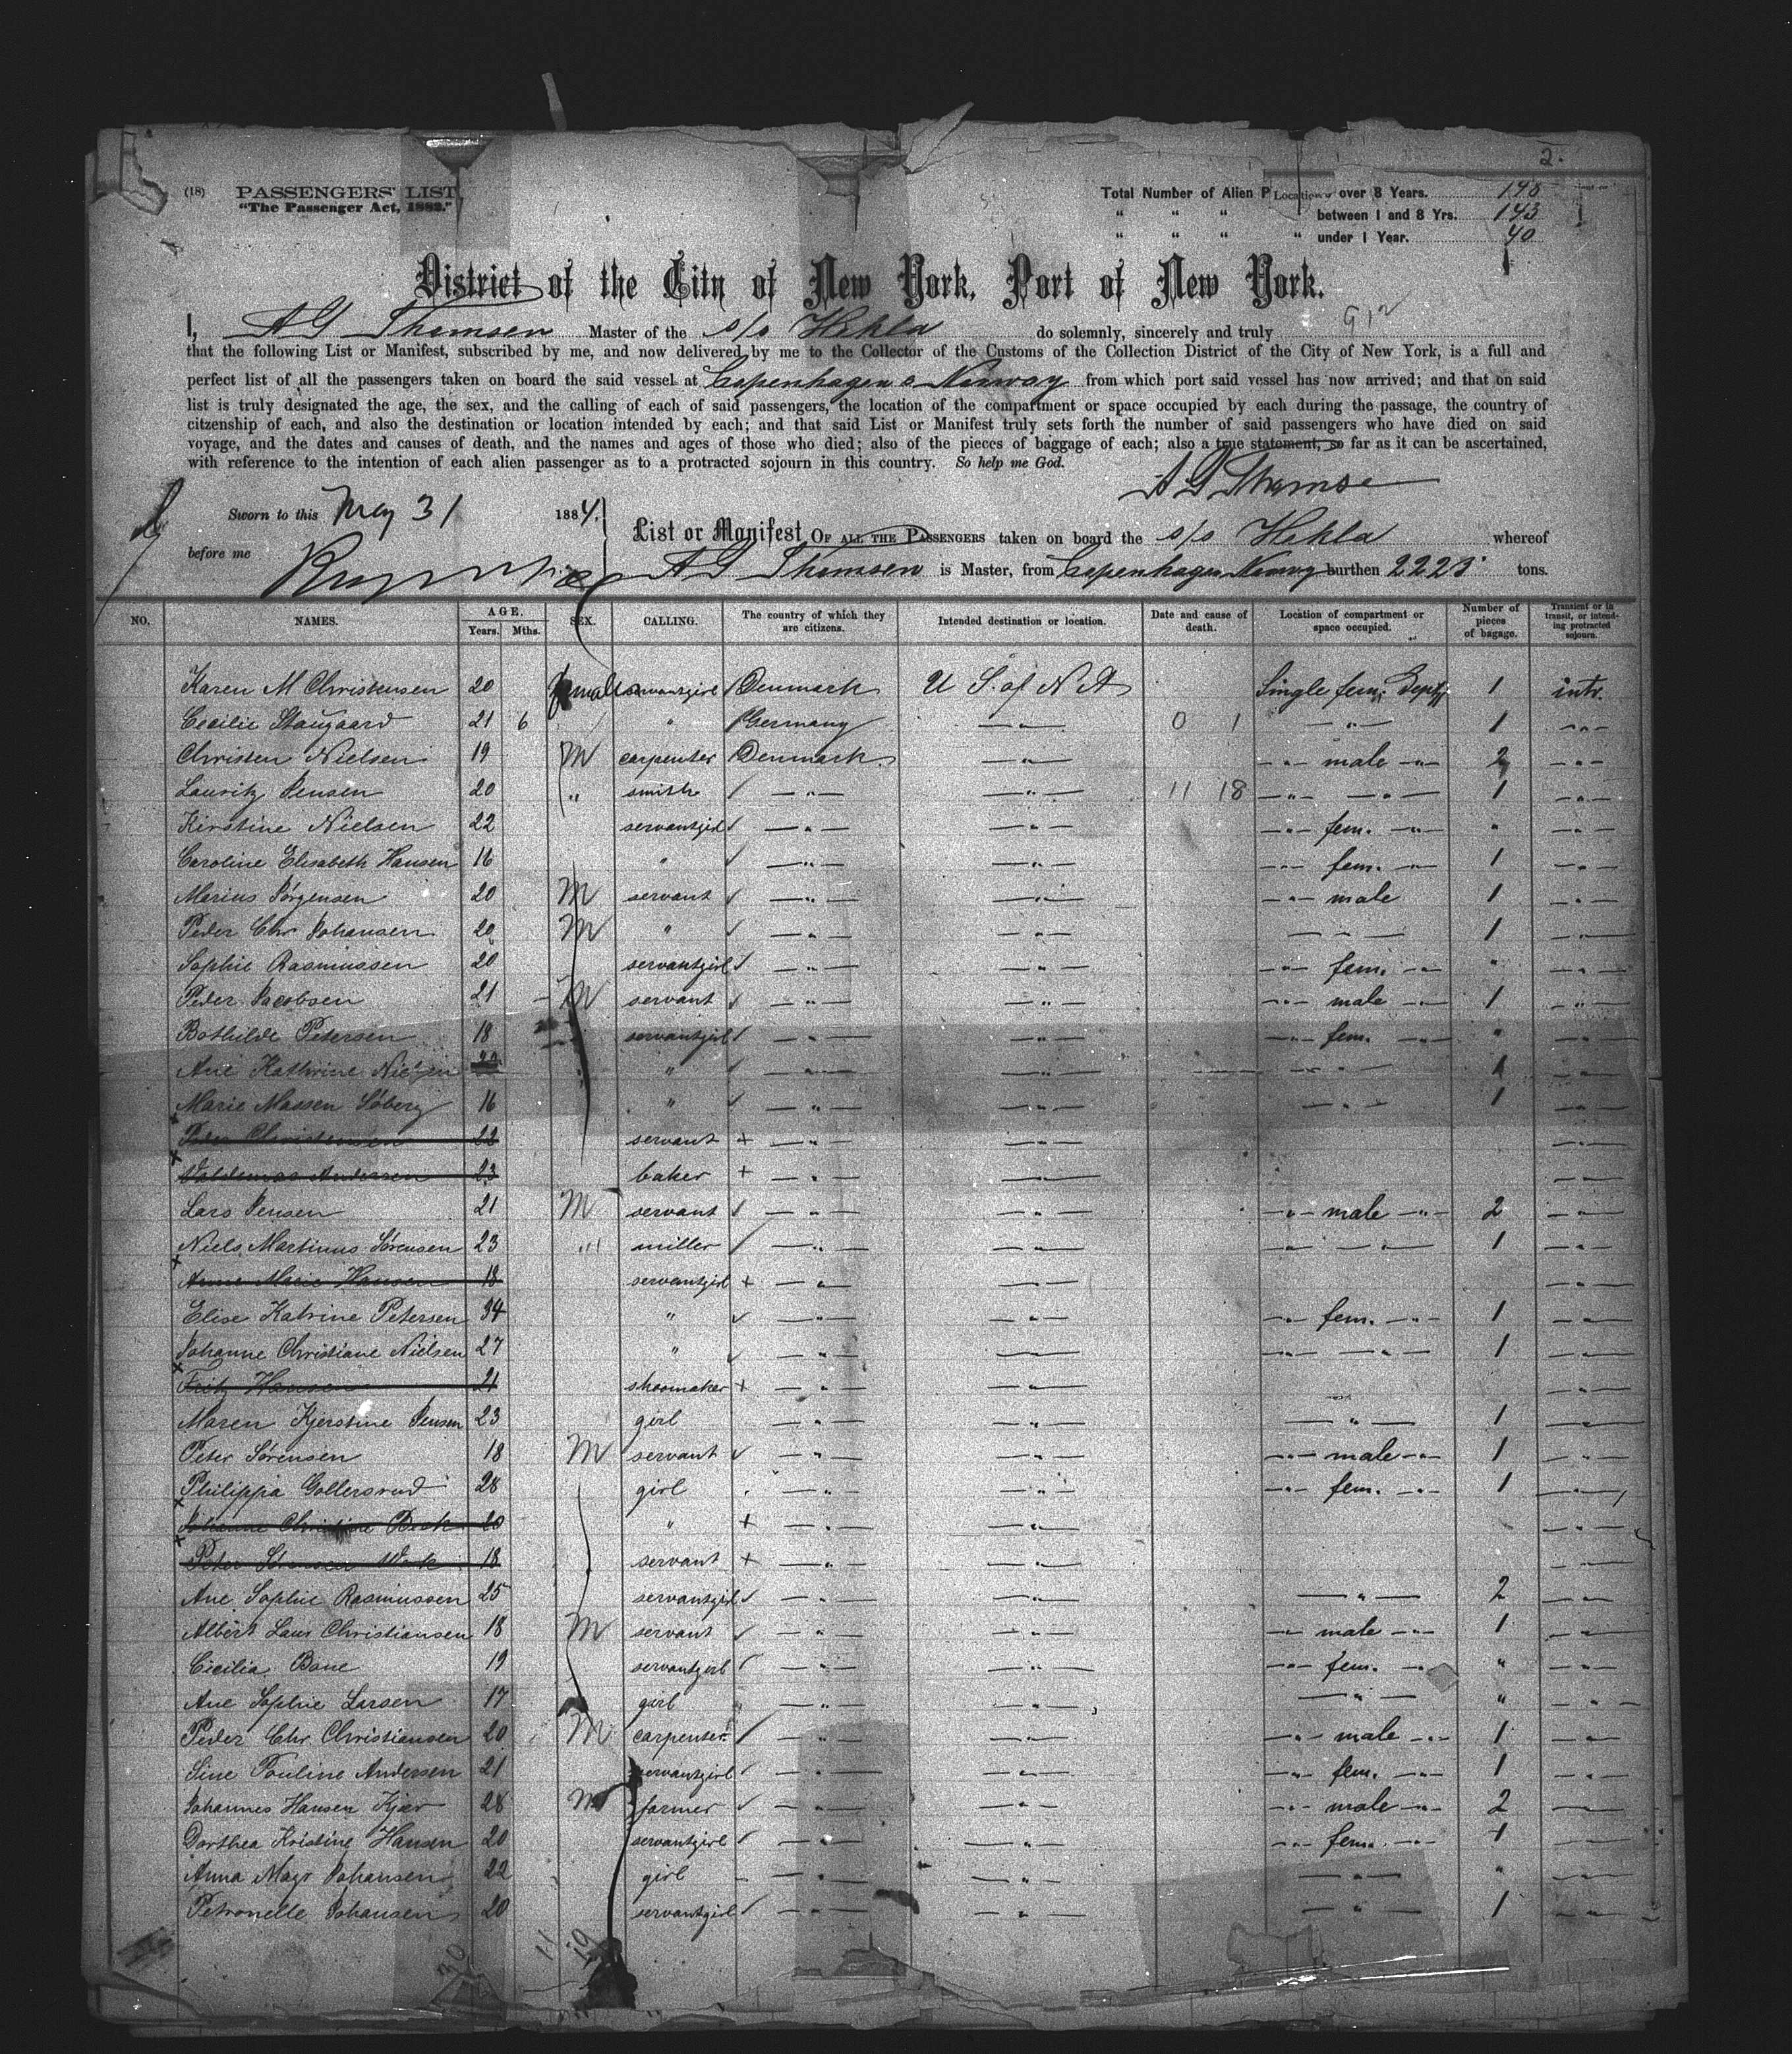 2.
(18) PASSENGERS' LIST
"The Passenger Act, 1882."
Total Number of Alien P Location over 8 Years.
" " " between 1 and 8 Yrs. 143
" " " " under 1 Year. 40
District of the City of New York, Port of New York.
I, A G Thomsen Master of the s/s Hekla do solemnly, sincerely and truly
that the following List or Manifest, subscribed by me, and now delivered by me to the Collector of the Customs of the Collection District of the City of New York, is a full and
perfect list of all the passengers taken on board the said vessel at Copenhagen & Norway from which port said vessel has now arrived; and that on said
list is truly designated the age, the sex, and the calling of each of said passengers, the location of the compartment or space occupied by each during the passage, the country of
citzenship of each, and also the destination or location intended by each; and that said List or Manifest truly sets forth the number of said passengers who have died on said
voyage, and the dates and causes of death, and the names and ages of those who died; also of the pieces of baggage of each; also a true statement, so far as it can be ascertained,
with reference to the intention of each alien passenger as to a protracted sojourn in this country. So help me God.
A G Thomse
Sworn to this May 31 1884.
before me
List or Manifest OF ALL THE PASSENGERS taken on board the s/s Hekla whereof
A G Thomsen is Master, from Copenhagen Norway burthen 2225 tons.
NO. NAMES. AGE. Years. Mths. SEX. CALLING. The country of which they are citizens. Intended destination or location. Date and cause of death. Location of compartment or space occupied. Number of pieces of bagage. Transient or in transit, or intending protracted sojourn.
Karen M Christensen 20 female servantgirl / Denmark U S. of N A Single fem. Dept. 1 intr.
Cecilie Staugaard 21 6 " / Germany —"— 0 1 —"— 1 —"—
Christen Nielsen 19 M carpenter Denmark —"— —"— male —"— 2 —"—
Lauritz Jensen 20 " smith / —"— —"— 11 18 —"— —"— 1 —"—
Kirstine Nielsen 22 servantgirl / —"— —"— —"— fem. —"— " —"—
Caroline Elisabeth Hansen 16 " / —"— —"— —"— fem. —"— 1 —"—
Marius Jørgensen 20 M servant / —"— —"— —"— male 1 —"—
Peder Chr. Johansen 20 M " / —"— —"— —"— 1 —"—
Sophie Rasmussen 20 servantgirl / —"— —"— —"— fem. —"— " —"—
Peder Jacobsen 21 M servant / —"— —"— —"— male —"— 1 —"—
Bothilde Petersen 18 servantgirl / —"— —"— —"— fem. —"— " —"—
Ane Kathrine " / —"— —"— —"— 1 —"—
Marie Massen Søberg 16 " / —"— —"— —"— 1 —"—
x Peder Christensen 22 servant + —"— —"— —"—
x Valdemar Andersen 23 baker + —"— —"— —"—
Lars Jensen 21 M servant / —"— —"— —"— male —"— 2 —"—
Niels Martinus Sørensen 23 " miller / —"— —"— —"— —"— 1 —"—
x Anne Marie Hansen 18 servantgirl + —"— —"— —"—
Elise Katrine Petersen 34 " / —"— —"— —"— fem. —"— 1 —"—
Johanne Christiane Nielsen 27 " / —"— —"— —"— —"— 1 —"—
x Fritz Hansen 21 shoomaker + —"— —"— —"—
Maren Kjerstine Jensen 23 girl —"— —"— —"— 1 —"—
Peter Sørensen 18 M servant / —"— —"— —"— male —"— 1 —"—
Philippa Gollersrud 28 girl —"— —"— —"— fem. —"— 1 —"—
x Johanne Christine Beck 20 " + —"— —"— —"—
x Peter Sørensen 18 servant + —"— —"— —"—
Ane Sophie Rasmussen 25 servantgirl / —"— —"— —"— 2 —"—
Albert Laur Christiansen 18 M servant / —"— —"— —"— male —"— 1 —"—
Cicilia Bane 19 servantgirl / —"— —"— —"— fem. —"— " —"—
Ane Sophie Larsen 17 girl —"— —"— —"— " —"—
Peder Chr. Christiansen 20 M carpenter / —"— —"— —"— male —"— 1 —"—
Sine Pouline Andersen 21 servantgirl / —"— —"— —"— fem. —"— 1 —"—
Johannes Hansen Kjær 28 M farmer / —"— —"— —"— male —"— 2 —"—
Dorthea Kristine Hansen 20 servantgirl / —"— —"— —"— fem. —"— 1 —"—
Anna Magr Johansen 22 girl —"— —"— —"— " —"—
Petronelle Johansen 20 servantgirl / —"— —"— —"— 1 —"—
30 11 19